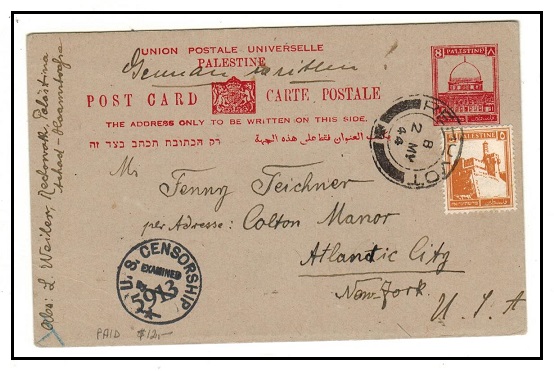 UNION POSTALE UNIVERSELLE
PALESTINE
German written!
POST CARD CARTE POSTALE
THE ADDRESS ONLY TO BE WRITTEN ON THIS SIDE.
רק הכתובת תכתב בצד זה
العنوان فقط على هذه الجهة
8 PALESTINE ٨
PALESTINE
8 MY
44
Mr Fenny Teichner
per Adresse: Colton Manor
Atlantic City
New-York
U. S. A
U. S. CENSORSHIP
EXAMINED
BY
5913
PAID $12,-
Abs: L. Weiler, Rechowoth, Palestina